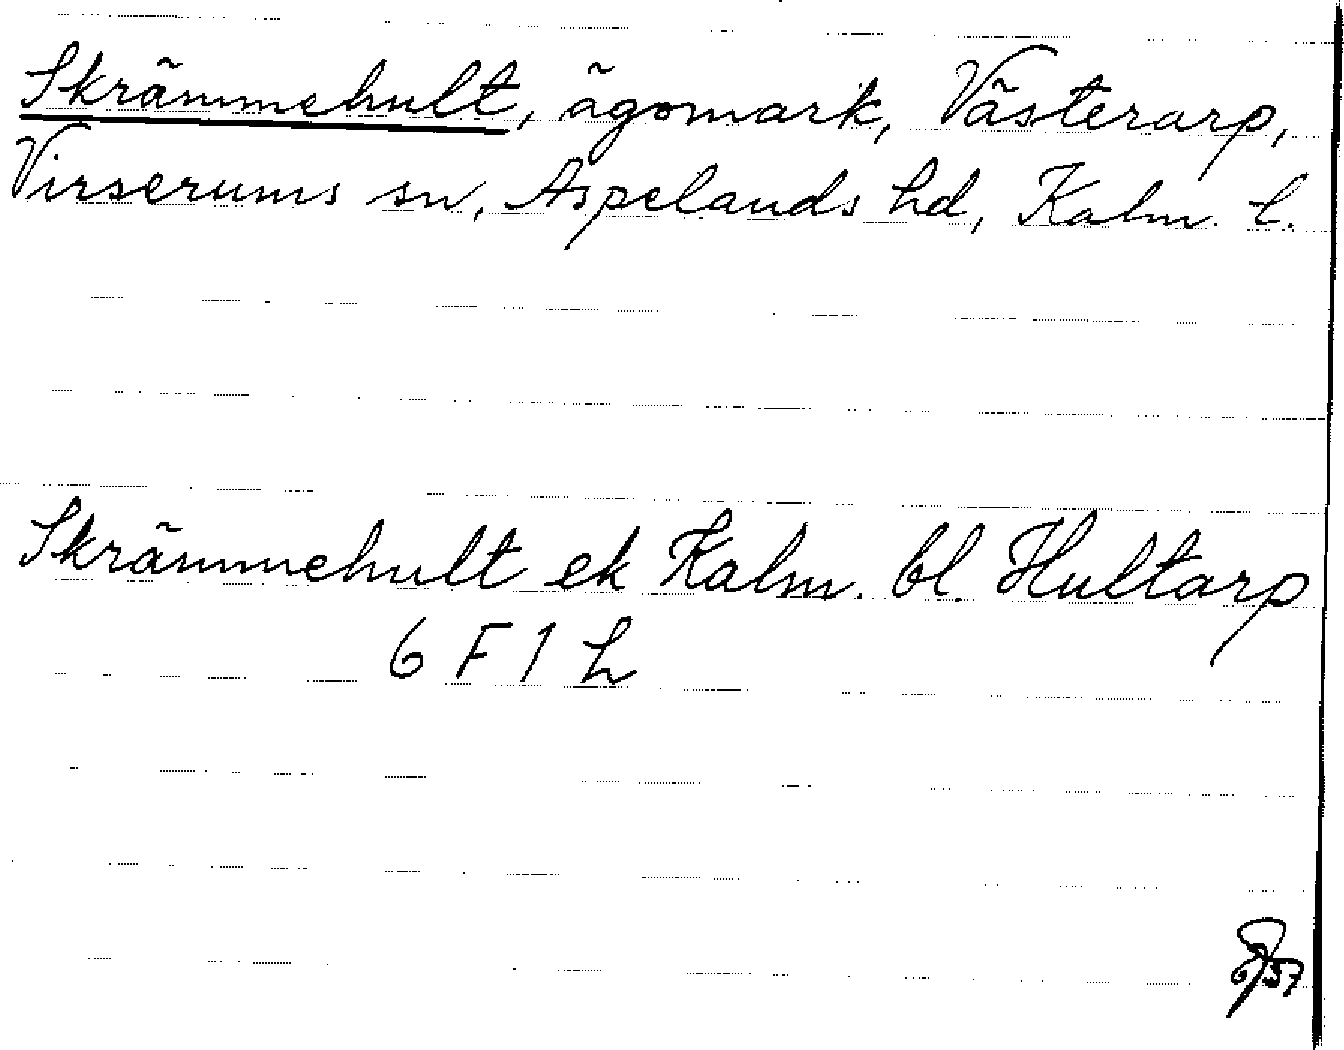 Skrämmehult, ägomark, Västerarp,
Virserums sn, Aspelands hd, Kalm. l.
Skrämmehult ek Kalm. bl. Hultarp
6 F 1 h